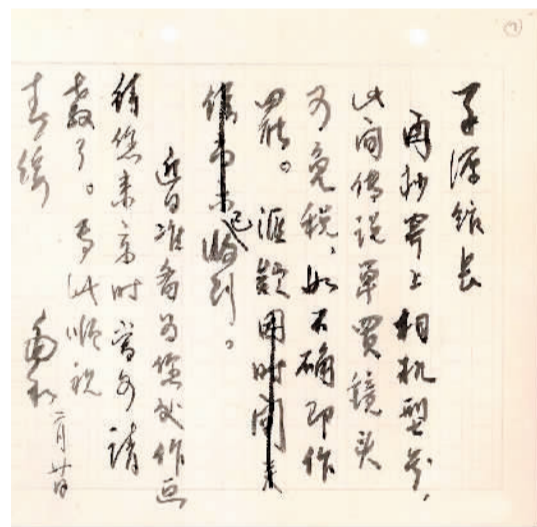 子源馆长
再抄寄上相机型号，
此间传说单买镜头
可免税，如不确即作
罢。汇款因时间未
已收到。
近日准备为您处作画
待您来京时当可请
教了。专此顺祝
春绥
二月廿日